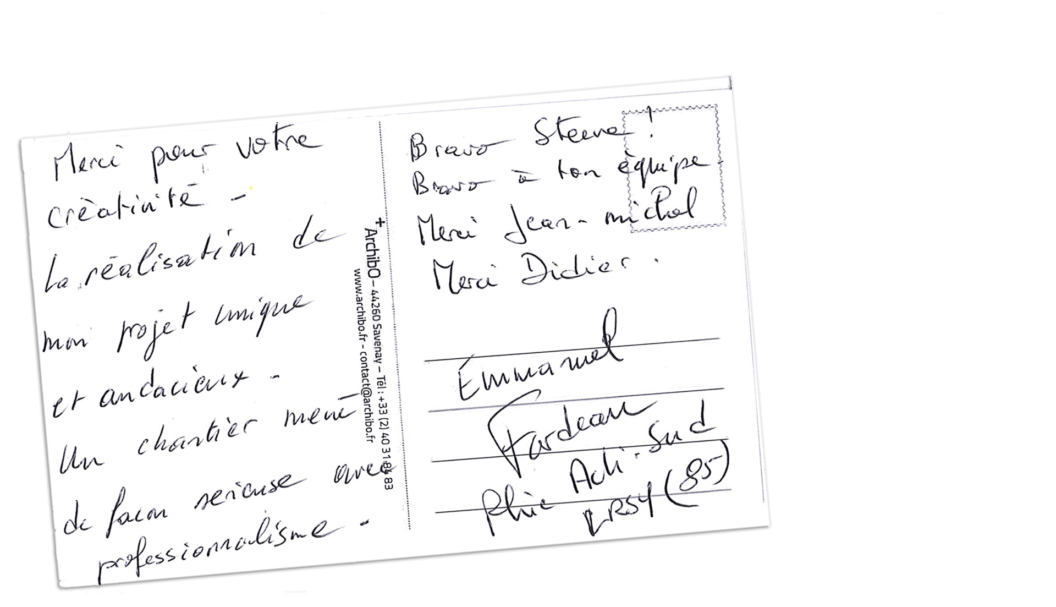 Merci pour votre
créativité -
La réalisation de
mon projet unique
et audacieux -
Un chantier mené
de façon serieuse avec
professionnalisme -
+ ArchibO – 44260 Savenay – Tél : +33 (2) 40 31 84 83
www.archibo.fr - contact@archibo.fr
Bravo Steeve !
Bravo à ton équipe.
Merci Jean-michel
Merci Didier.
Emmanuel
Fardeau
Phie Acti-Sud
LRSY (85)